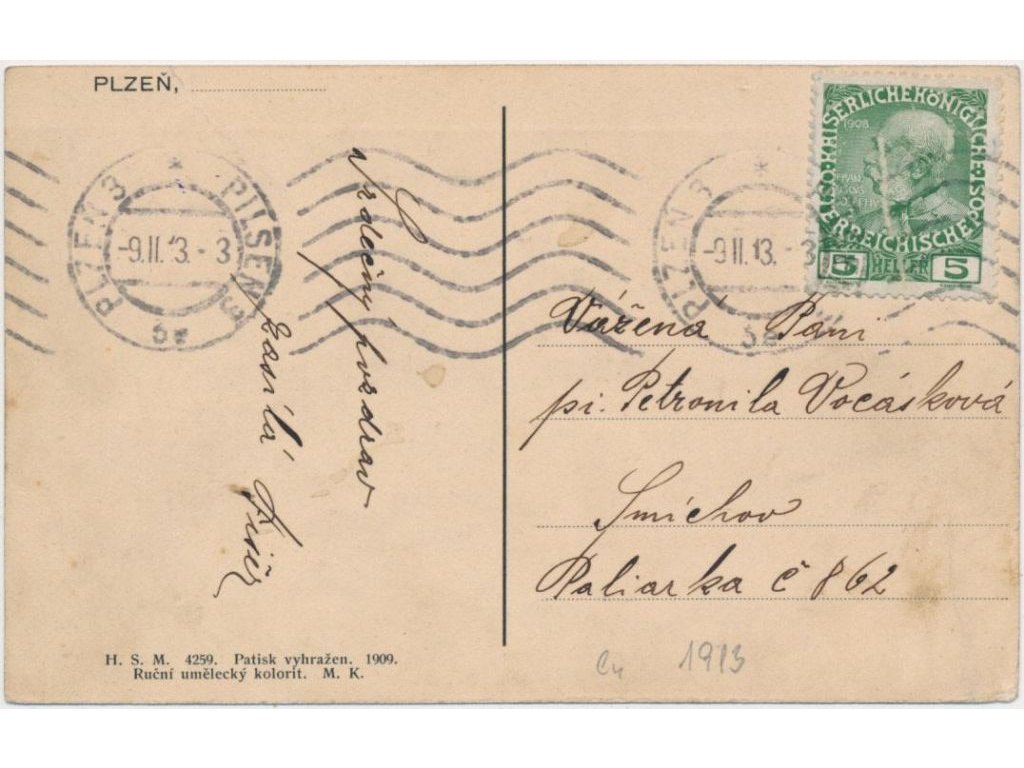 PLZEŇ,
Srdečný pozdrav
zasílá
H. S. M. 4259. Patisk vyhražen. 1909.
Ruční umělecký kolorit. M. K.
PLZEŇ 3 * PILSEN 3
-9.II.13.-3
5a
PLZEŇ 3 *
-9.II.13.-3
5a
KAISERLICHE KÖNIGLICHE ÖSTERREICHISCHE POST
1908
5 HELLER 5
Vážená Paní
pí. Petronila Vocásková
Smíchov
Paliarka č 862
1913